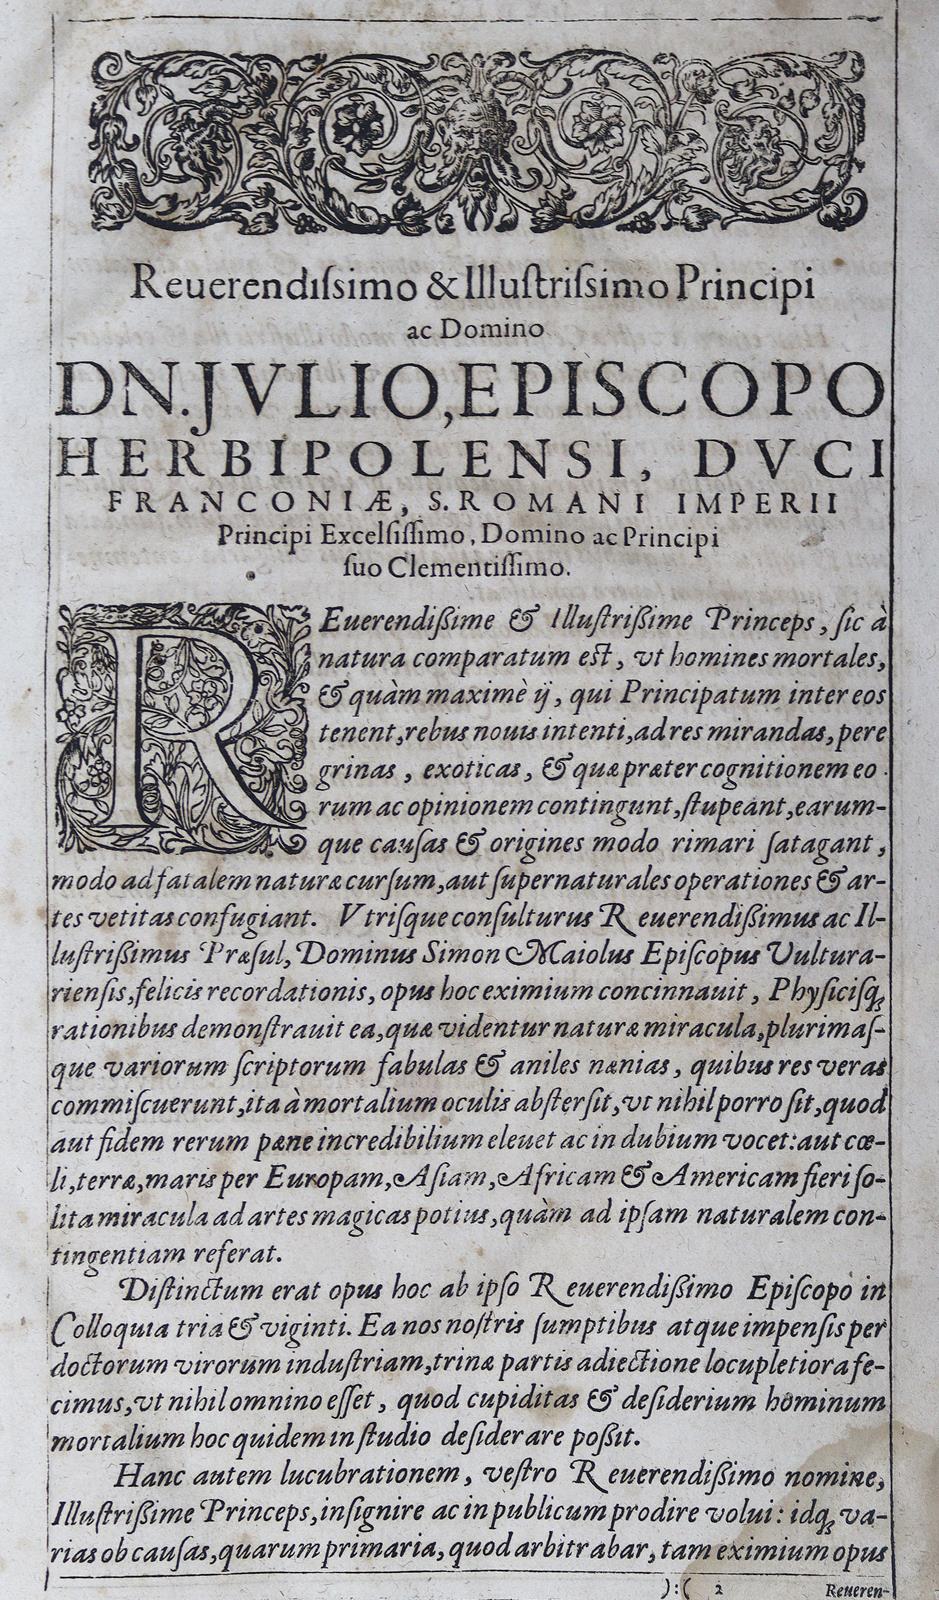 Reuerendiſsimo & Illuſtriſsimo Principi
ac Domino
DN. JVLIO, EPISCOPO
HERBIPOLENSI, DVCI
FRANCONIÆ, S. ROMANI IMPERII
Principi Excelſiſſimo, Domino ac Principi
ſuo Clementiſſimo.
REuerendißime & Illuſtrißime Princeps, ſic à
natura comparatum est, vt homines mortales,
& quàm maximè ij, qui Principatum inter eos
tenent, rebus nouis intenti, ad res mirandas, pere
grinas, exoticas, & quæ præter cognitionem eo
rum ac opinionem contingunt, ſtupeant, earum-
que cauſas & origines modo rimari ſatagant,
modo ad fatalem naturæ curſum, aut ſupernaturales operationes & ar-
tes vetitas confugiant. Vtriſque conſulturus Reuerendißimus ac Il-
luſtrißimus Præſul, Dominus Simon Maiolus Epiſcopus Vultura-
rienſis, felicis recordationis, opus hoc eximium concinnauit, Phyſiciſq;
rationibus demonſtrauit ea, quæ videntur naturæ miracula, plurimaſ-
que variorum ſcriptorum fabulas & aniles nænias, quibus res veras
commiſcuerunt, ita à mortalium oculis abſterſit, vt nihil porro ſit, quod
aut fidem rerum pæne incredibilium eleuet ac in dubium vocet: aut cœ-
li, terræ, maris per Europam, Aſiam, Africam & Americam fieri ſo-
lita miracula ad artes magicas potius, quàm ad ipſam naturalem con-
tingentiam referat.
Diſtinctum erat opus hoc ab ipſo Reuerendißimo Epiſcopo in
Colloquia tria & viginti. Ea nos noſtris ſumptibus atque impenſis per
doctorum virorum induſtriam, trinæ partis adiectione locupletiora fe-
cimus, vt nihil omnino eſſet, quod cupiditas & deſiderium hominum
mortalium hoc quidem in ſtudio deſiderare poßit.
Hanc autem lucubrationem, veſtro Reuerendißimo nomine,
Illuſtrißime Princeps, inſignire ac in publicum prodire volui: idq; va-
rias ob cauſas, quarum primaria, quod arbitrabar, tam eximium opus
):( 2 Reueren-